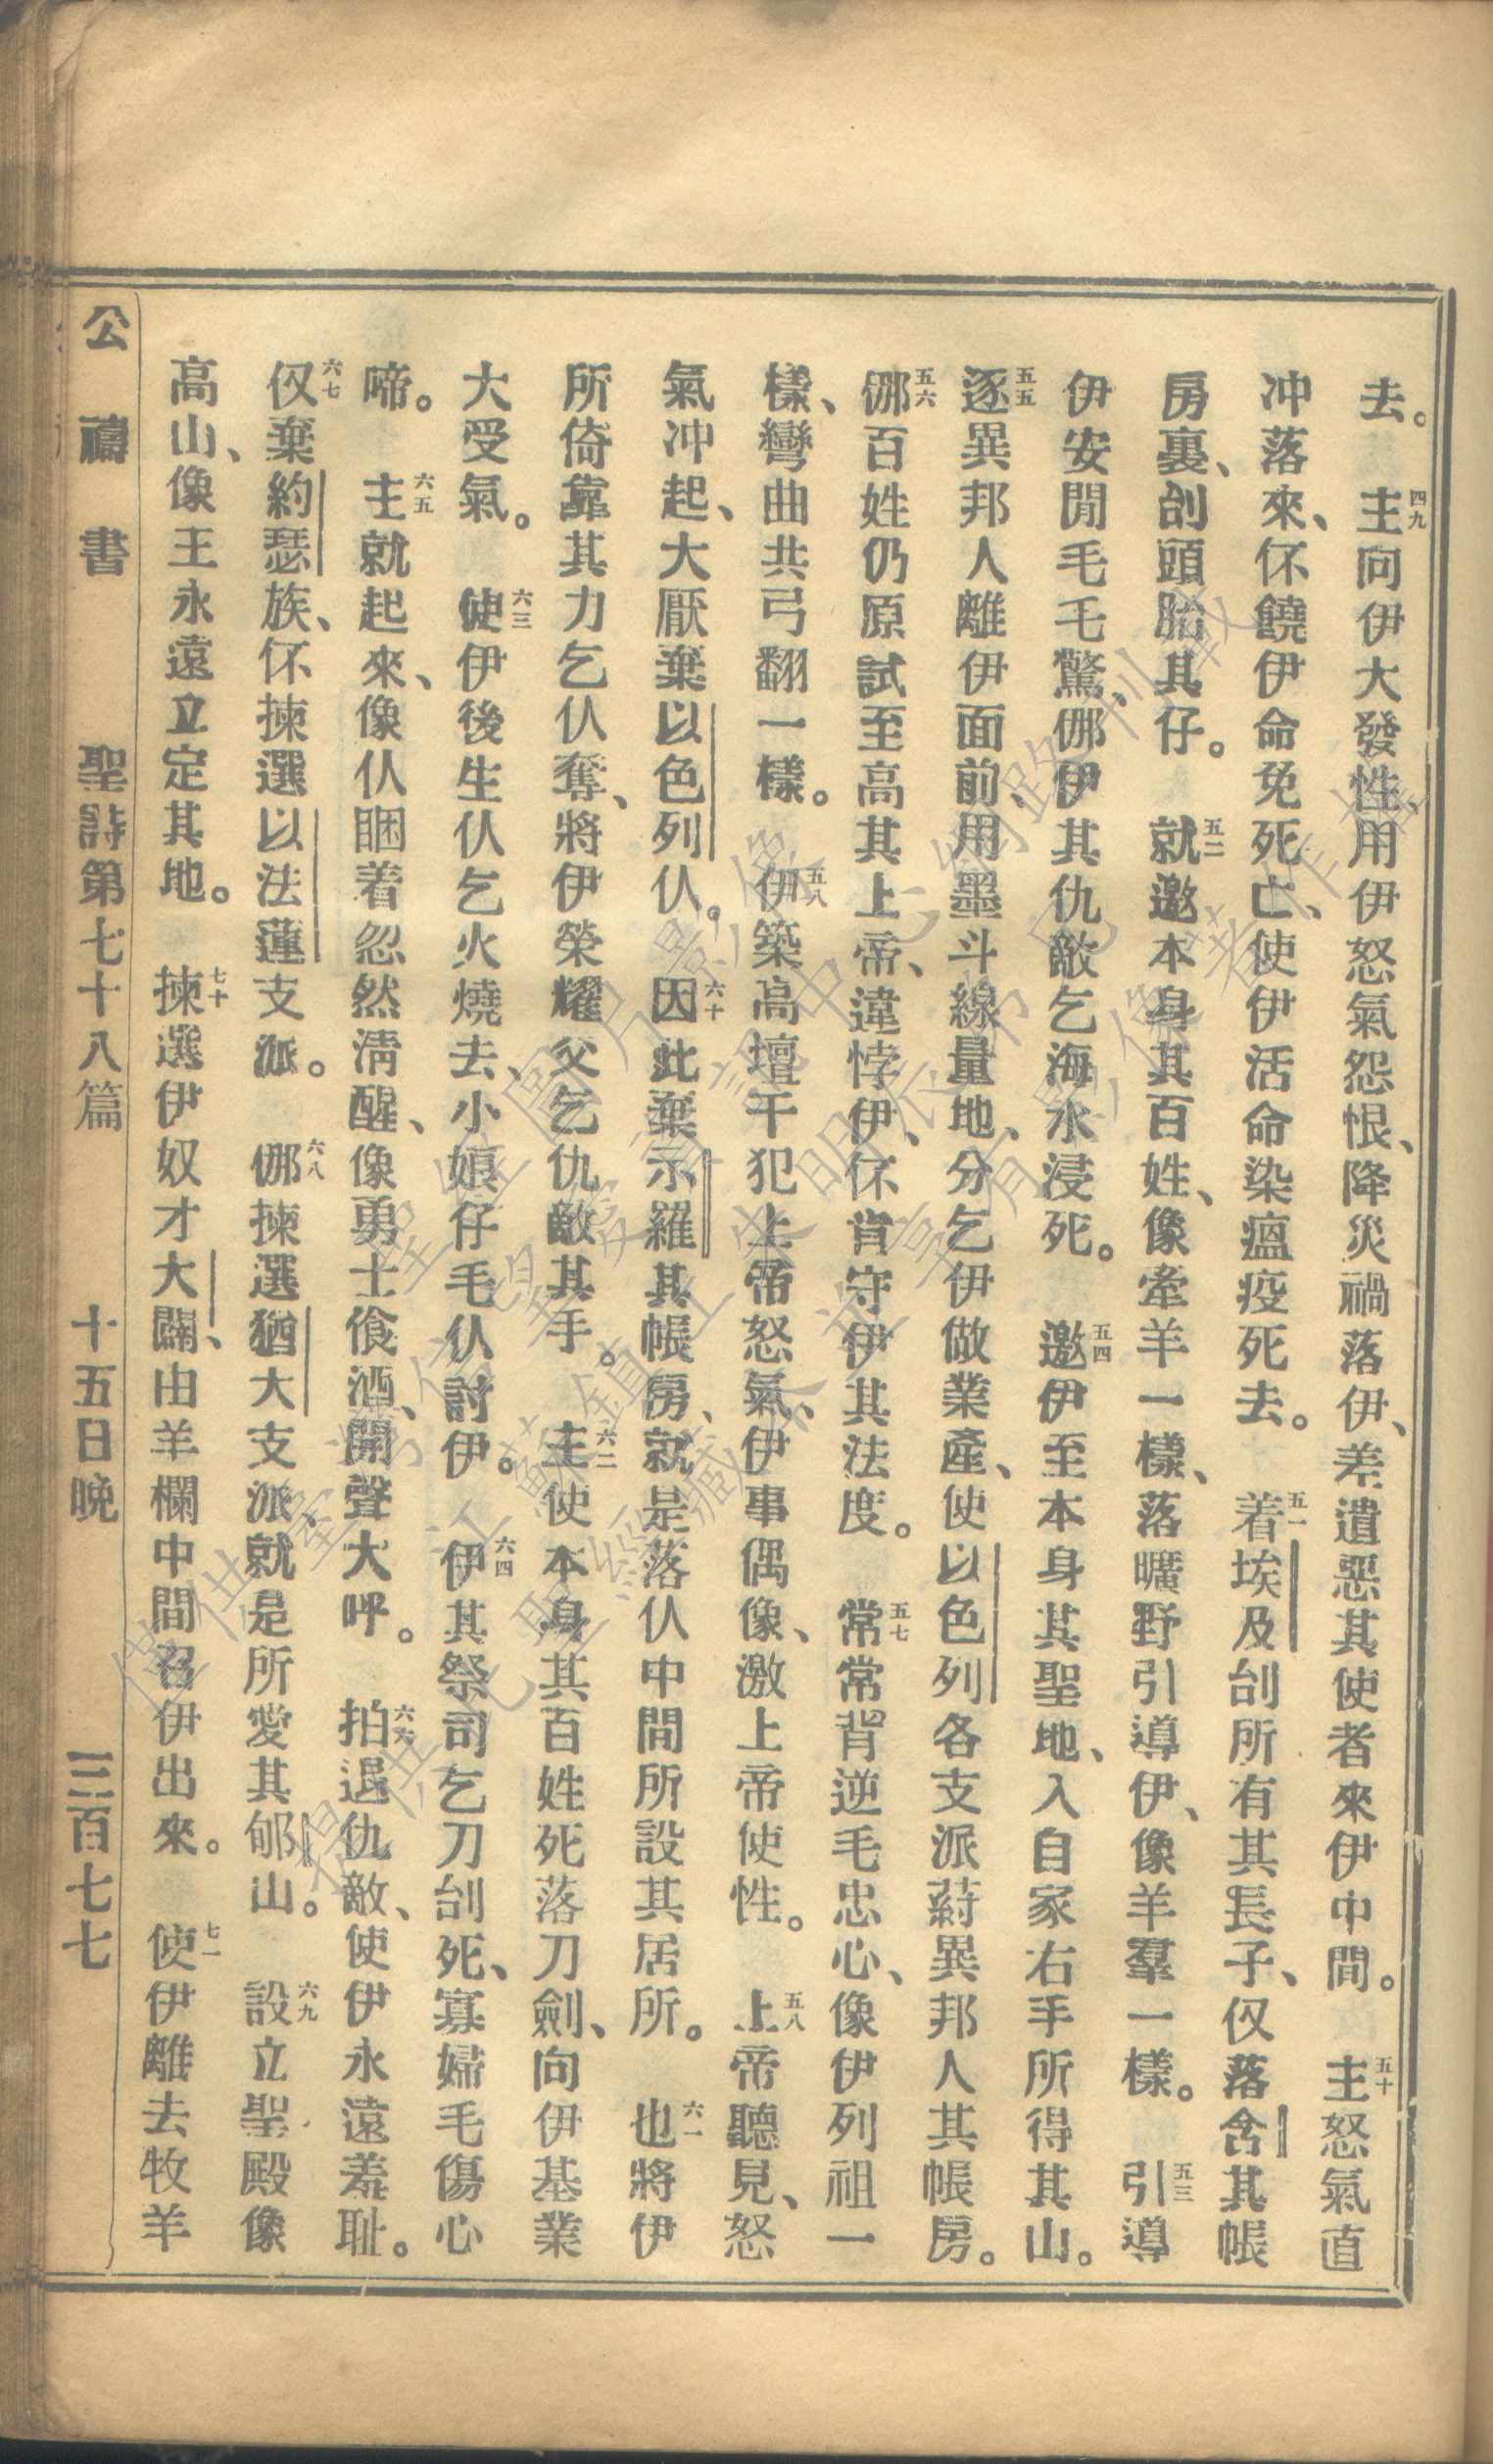 去。　四九主向伊大發性、用伊怒氣怨恨、降災禍落伊、差遣惡其使者來伊中間。　五十主怒氣直
冲落來、伓饒伊命免死亡、使伊活命染瘟疫死去。　五一着埃及刣所有其長子、仅落含其帳
房裏、刣頭胎其仔。　五二就邀本身其百姓、像牽羊一樣、落曠野引導伊、像羊羣一樣。　五三引導
伊安閒毛毛驚、𠆧伊其仇敵乞海水浸死。　五四邀伊至本身其聖地、入自家右手所得其山。
五五逐異邦人離伊面前、用墨斗線量地、分乞伊做業產、使以色列各支派蒔異邦人其帳房。
五六𠆧百姓仍原試至高其上帝、違悖伊、伓肯守伊其法度。　五七常常背逆毛忠心、像伊列祖一
樣、彎曲共弓翻一樣。　五八伊築高壇干犯上帝怒氣、伊事偶像、激上帝使性。　五八上帝聽見、怒
氣冲起、大厭棄以色列仈。　六十因此棄示羅其帳房、就是落仈中間所設其居所。　六一也將伊
所倚靠其力乞仈奪、將伊榮耀父乞仇敵其手。　六二主使本身其百姓死落刀劍、向伊基業
大受氣。　六三使伊後生仈乞火燒去、小娘仔毛仈討伊。　六四伊其祭司乞刀刣死、寡婦毛傷心
啼。　六五主就起來、像仈睏着忽然淸醒、像勇士飡酒、開聲大呼。　六六拍退仇敵、使伊永遠羞耻。
六七仅棄約瑟族、伓揀選以法蓮支派。　六八𠆧揀選猶大支派、就是所愛其郇山。　六九設立聖殿像
高山、像王永遠立定其地。　七十揀選伊奴才大闢、由羊欄中間召伊出來。　七一使伊離去牧羊
公禱書　聖詩第七十八篇　十五日晚　三百七七